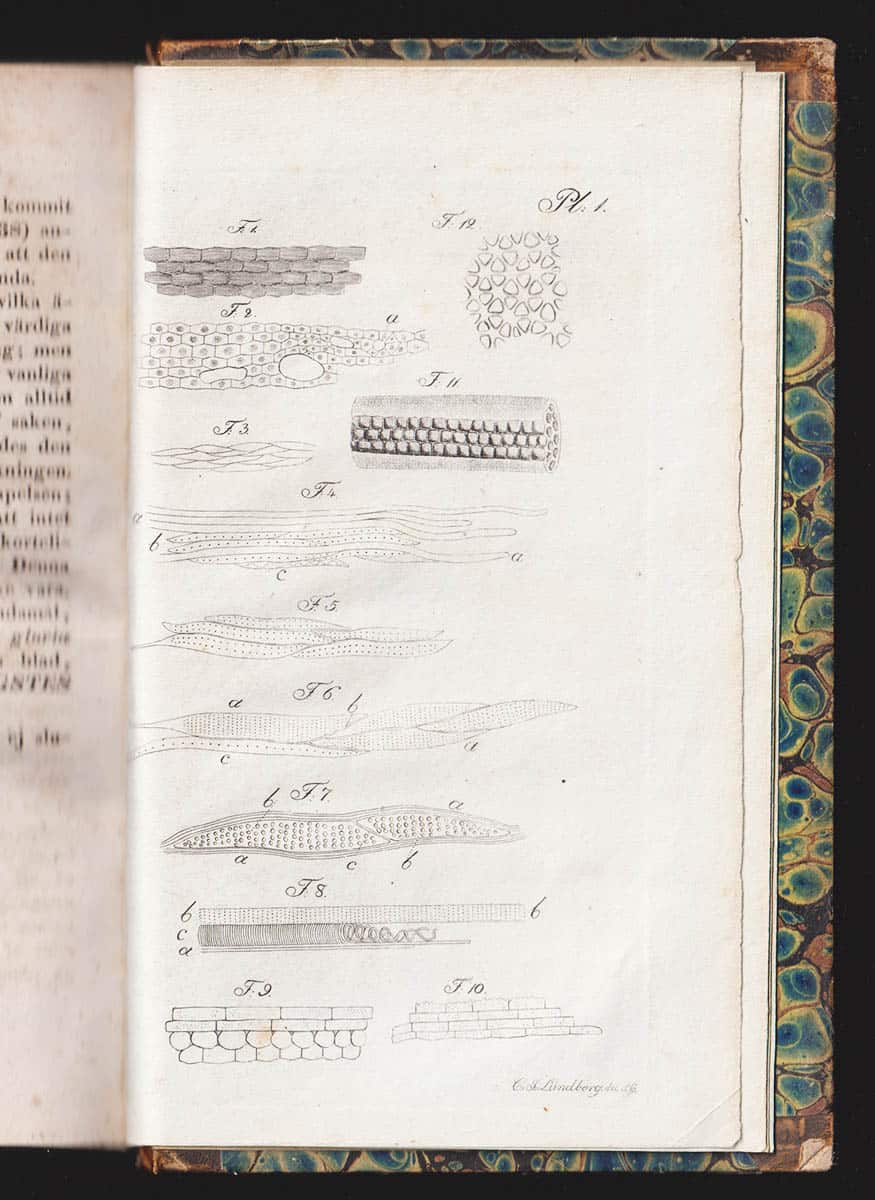 kommit
38) an-
att den
nda.
vilka ä-
värdiga
g; men
vanliga
n alltid
saken,
des den
kningen.
apelsen;
Att intet
korteli-
Denna
vara,
ndamål,
gloria
blad,
INTEN
ej slu-
Pl: 1.
F. 1.
F. 12.
F. 2.
a
F. 11.
F. 3.
F. 4
a
b
a
c
F. 5.
F. 6.
a
b
c
a
b
F. 7.
a
a
c
b
F. 8.
b
b
c
a
F. 9.
F. 10.
C. J. Lundborg